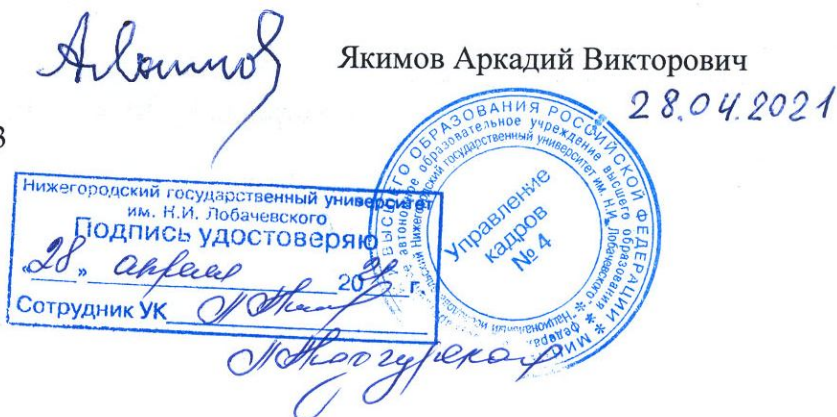 Якимов Аркадий Викторович
28.04.2021
3
Нижегородский государственный университет
им. Н.И. Лобачевского
Подпись удостоверяю
"28" апреля 2021 г.
Сотрудник УК
ВЫСШЕГО ОБРАЗОВАНИЯ РОССИЙСКОЙ ФЕДЕРАЦИИ * МИН
автономное образовательное учреждение высшего образования
Нижегородский государственный университет им. Н.И. Лобачевского * Национальный
Управление
кадров
№ 4